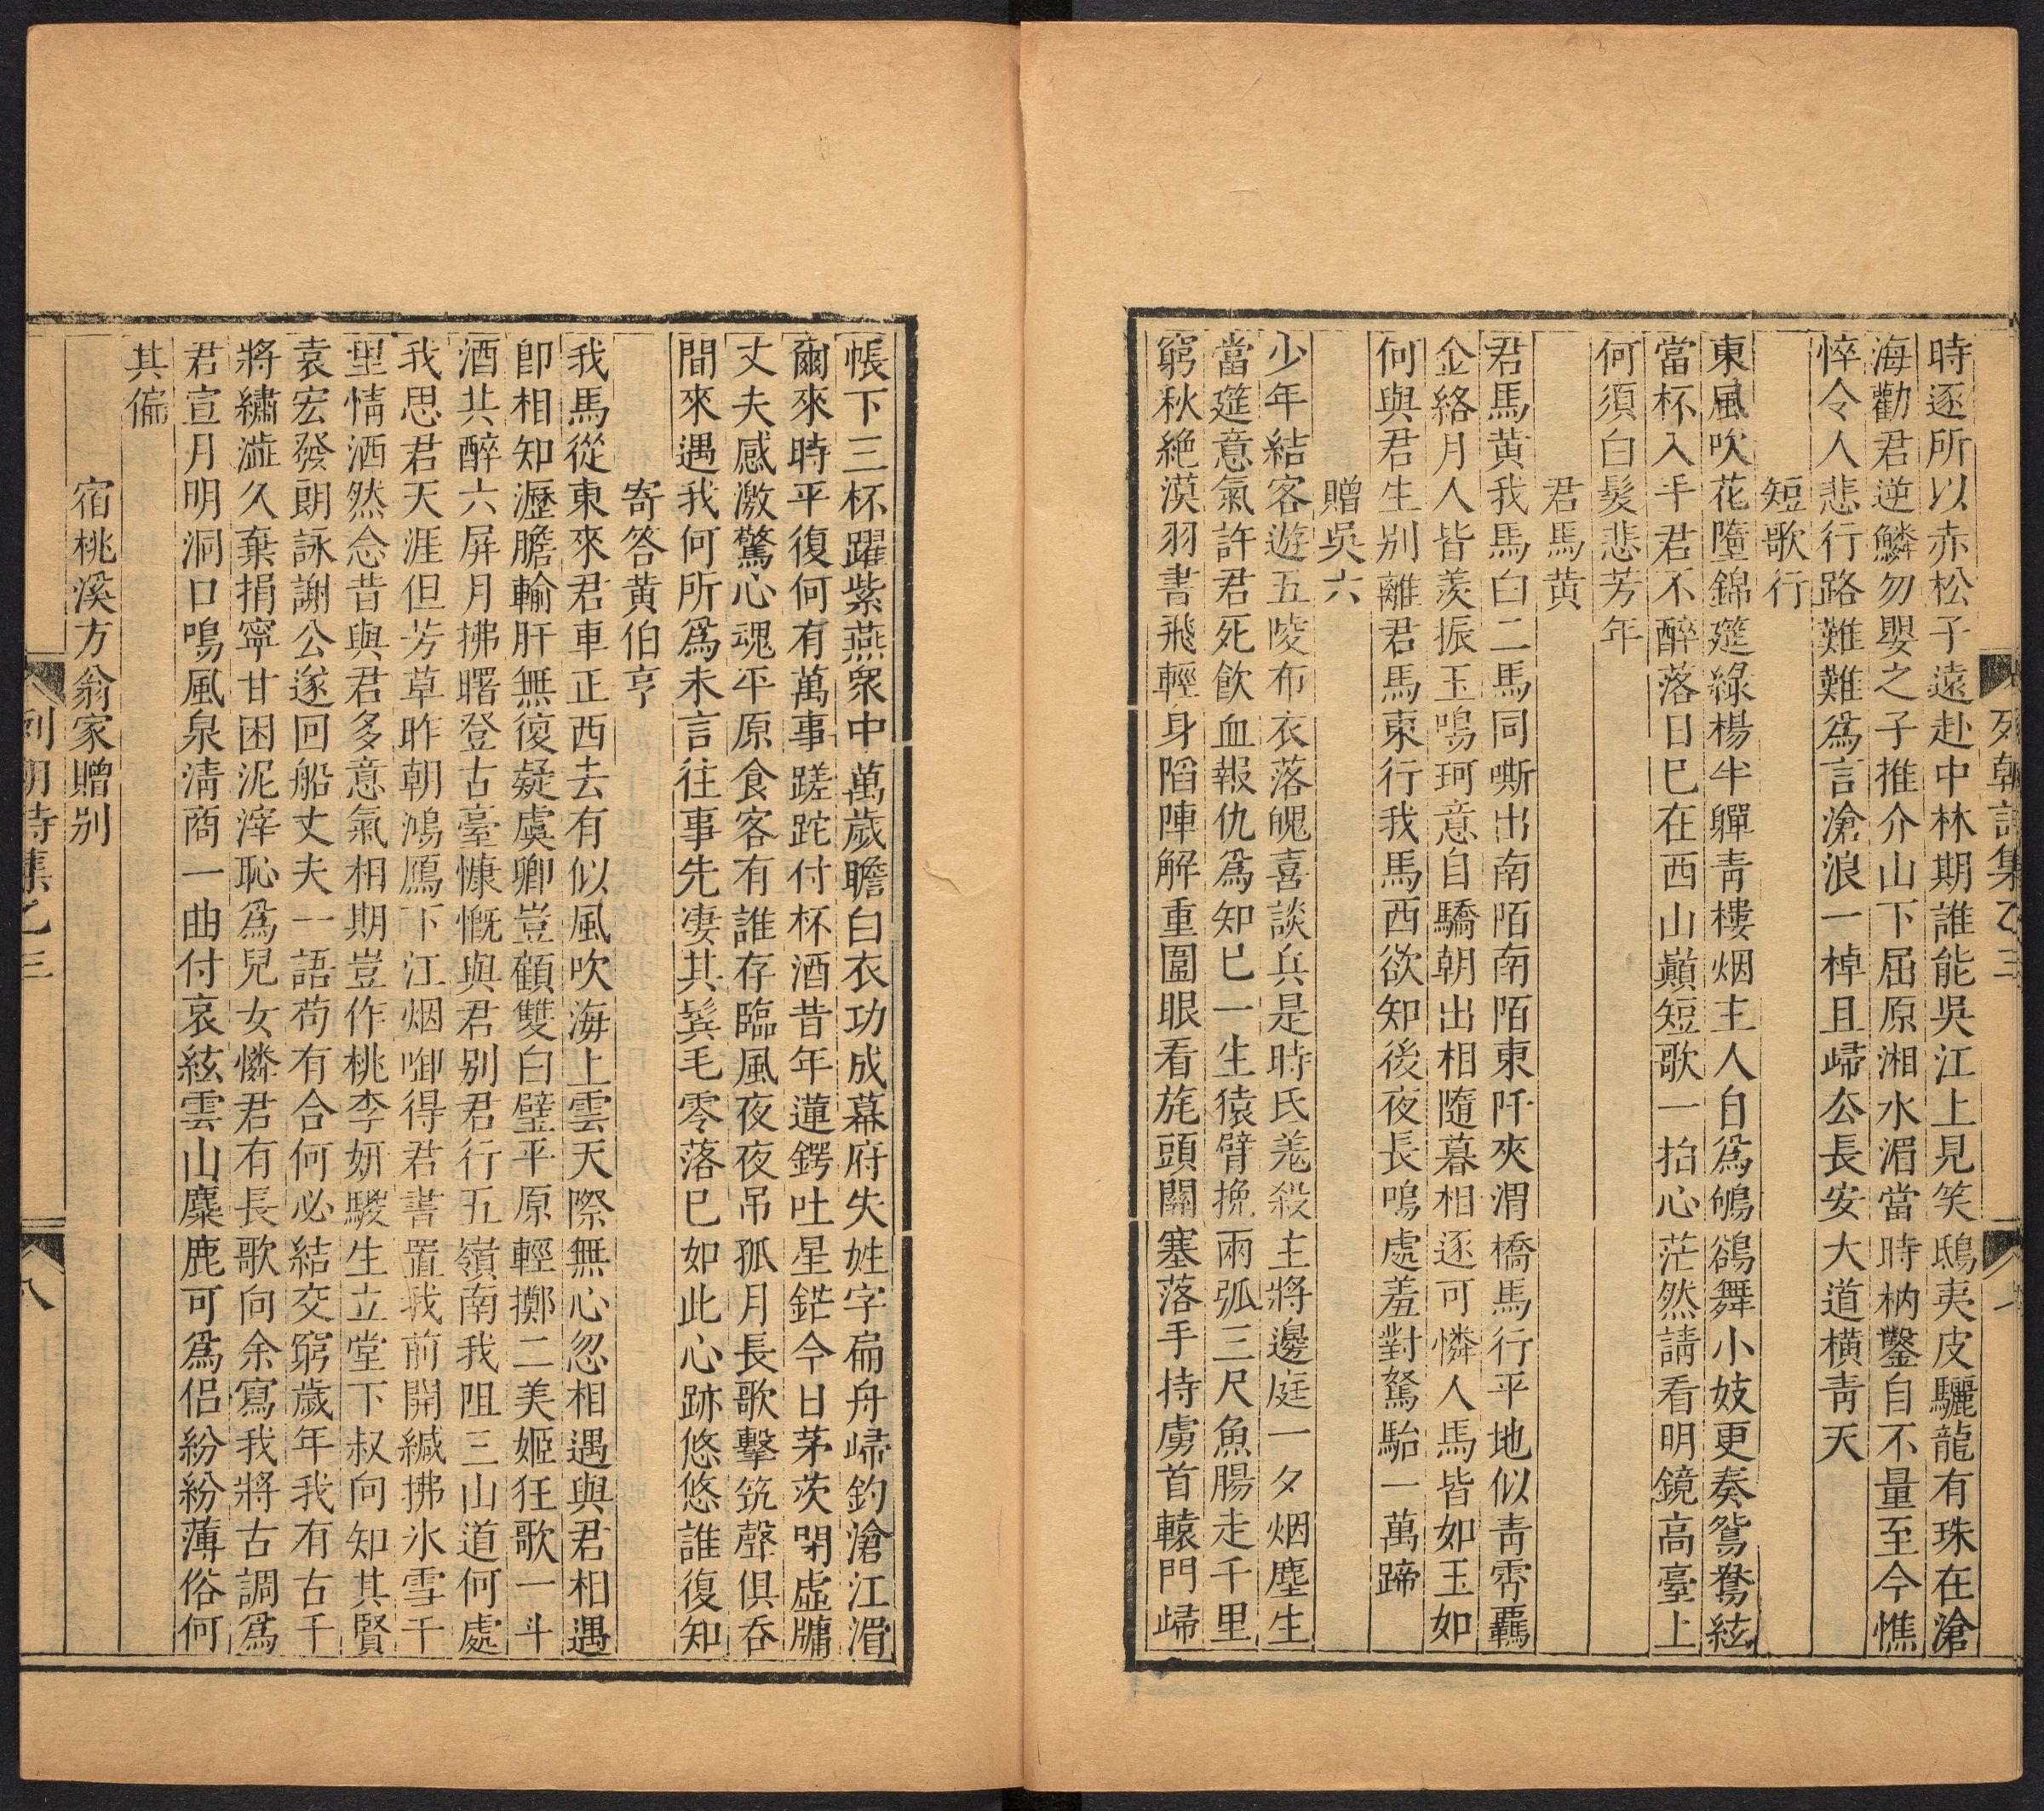 列朝詩集乙三
時逐所以赤松子遠赴中林期誰能吳江上見笑鴟夷皮驪龍有珠在滄
海勸君逆鱗勿嬰之子推介山下屈原湘水湄當時枘鑿自不量至今憔
悴令人悲行路難難爲言滄浪一棹且歸公長安大道橫青天
短歌行
東風吹花墮錦筵綠楊半嚲青樓烟主人自爲鴝鵒舞小妓更奏鴛鴦絃
當杯入手君不醉落日已在西山巔短歌一拍心茫然請看明鏡高臺上
何須白髮悲芳年
君馬黄
君馬黄我馬白二馬同嘶出南陌南陌東阡夾渭橋馬行平地似青霄覊
金絡月人皆羨振玉鳴珂意自驕朝出相隨暮相逐可憐人馬皆如玉如
何與君生别離君馬東行我馬西欲知後夜長鳴處羞對駑駘一萬蹄
贈吳六
少年結客遊五陵布衣落魄喜談兵是時氐羌殺主將邊庭一夕烟塵生
當筵意氣許君死飲血報仇爲知已一生猿臂挽兩弧三尺魚腸走千里
窮秋絶漠羽書飛輕身陷陣解重圍眼看旄頭關塞落手持虜首轅門歸
帳下三杯躍紫燕衆中萬歲瞻白衣功成幕府失姓字扁舟歸釣滄江湄
爾來時平復何有萬事蹉跎付杯酒昔年蓮鍔吐星鋩今日茅茨閉虛牖
丈夫感激驚心魂平原食客有誰存臨風夜夜吊孤月長歌擊筑聲俱吞
間來遇我何所爲未言往事先凄其鬂毛零落已如此心跡悠悠誰復知
寄答黄伯亨
我馬從東來君車正西去有似風吹海上雲天際無心忽相遇與君相遇
卽相知瀝膽輸肝無復疑虞卿豈顧雙白璧平原輕擲二美姬狂歌一斗
酒共醉六屏月拂曙登古臺慷慨與君别君行五嶺南我阻三山道何處
我思君天涯但芳草昨朝鴻鴈下江烟啣得君書置我前開緘拂氷雪千
里情洒然念昔與君多意氣相期豈作桃李妍駿生立堂下叔向知其賢
袁宏發朗詠謝公遂回船丈夫一語苟有合何必結交窮歲年我有古千
將繡澁久棄捐寧甘困泥滓恥爲兒女憐君有長歌向余寫我將古調爲
君宣月明洞口鳴風泉淸商一曲付哀絃雲山麋鹿可爲侣紛紛薄俗何
其偏
宿桃溪方翁家贈别
列朝詩集乙三
八